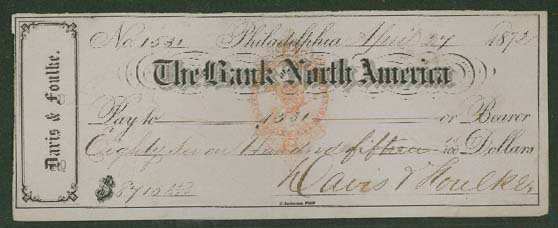 Davis & Foulke.
No. 1531 Philadelphia April 27 1872
The Bank of North America
Pay to 1531 or Bearer
Eighty seven Hundred fifteen /100 Dollars
$8715
Davis & Foulke